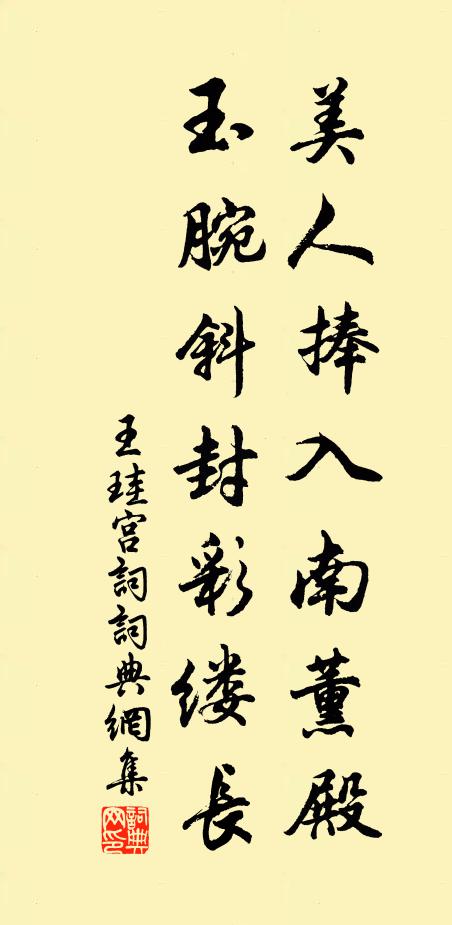 美人捧入南薰殿
玉腕斜封彩缕長
王珪宫詞詞典網集
詞典网印